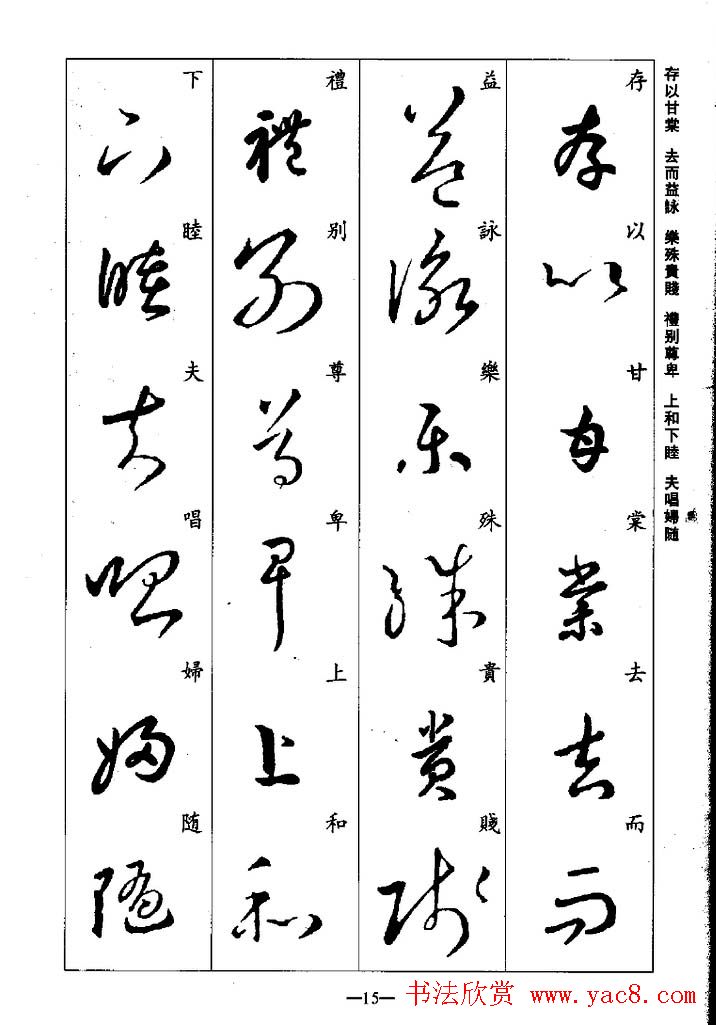 存以甘棠 去而益詠 樂殊貴賤 禮别尊卑 上和下睦 夫唱婦随
存以甘棠去而
益詠樂殊貴賤
禮别尊卑上和
下睦夫唱婦随
存以甘棠去而
益詠樂殊貴賤
禮别尊卑上和
下睦夫唱婦随
—15—
书法欣赏 www.yac8.com